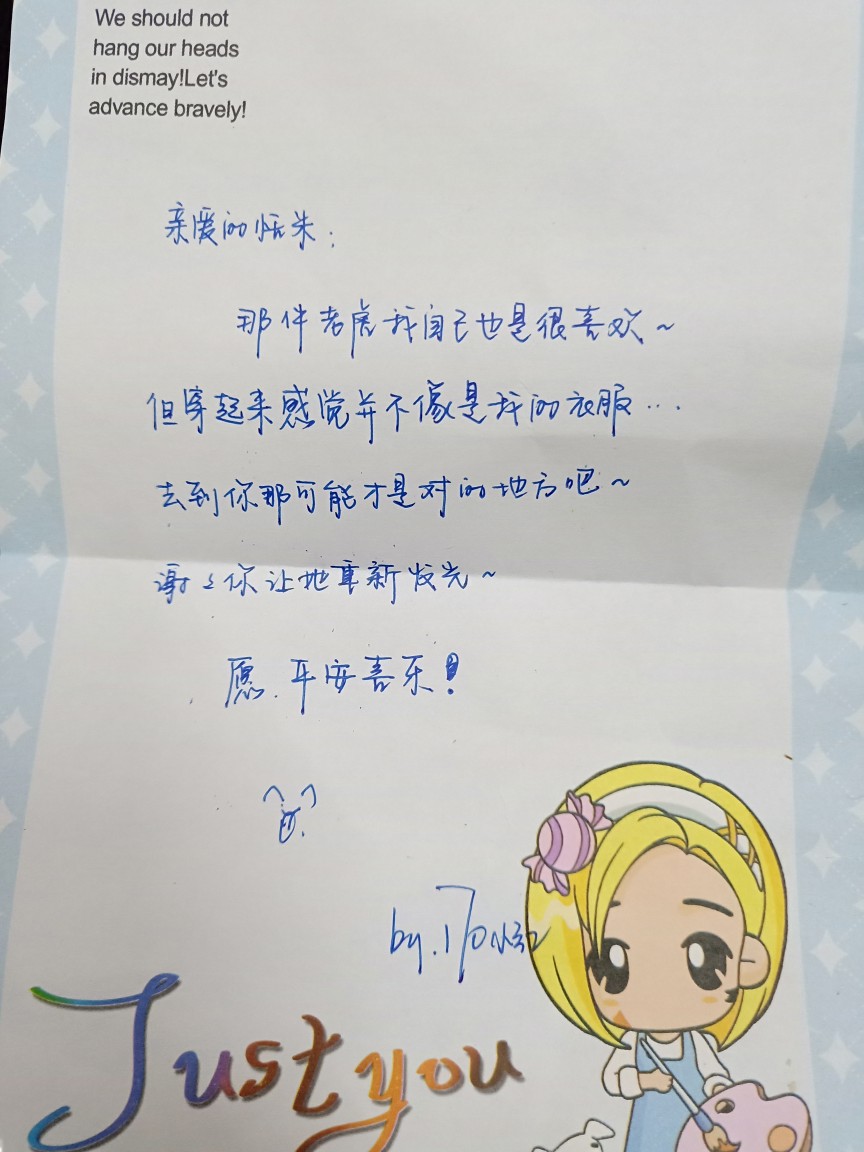 We should not
hang our heads
in dismay!Let's
advance bravely!
亲爱的恬朱：
那件老虎我自己也是很喜欢~
但穿起来感觉并不像是我的衣服…
去到你那可能才是对的地方吧~
谢谢你让她重新发光~
愿.平安喜乐!
by.
Just you